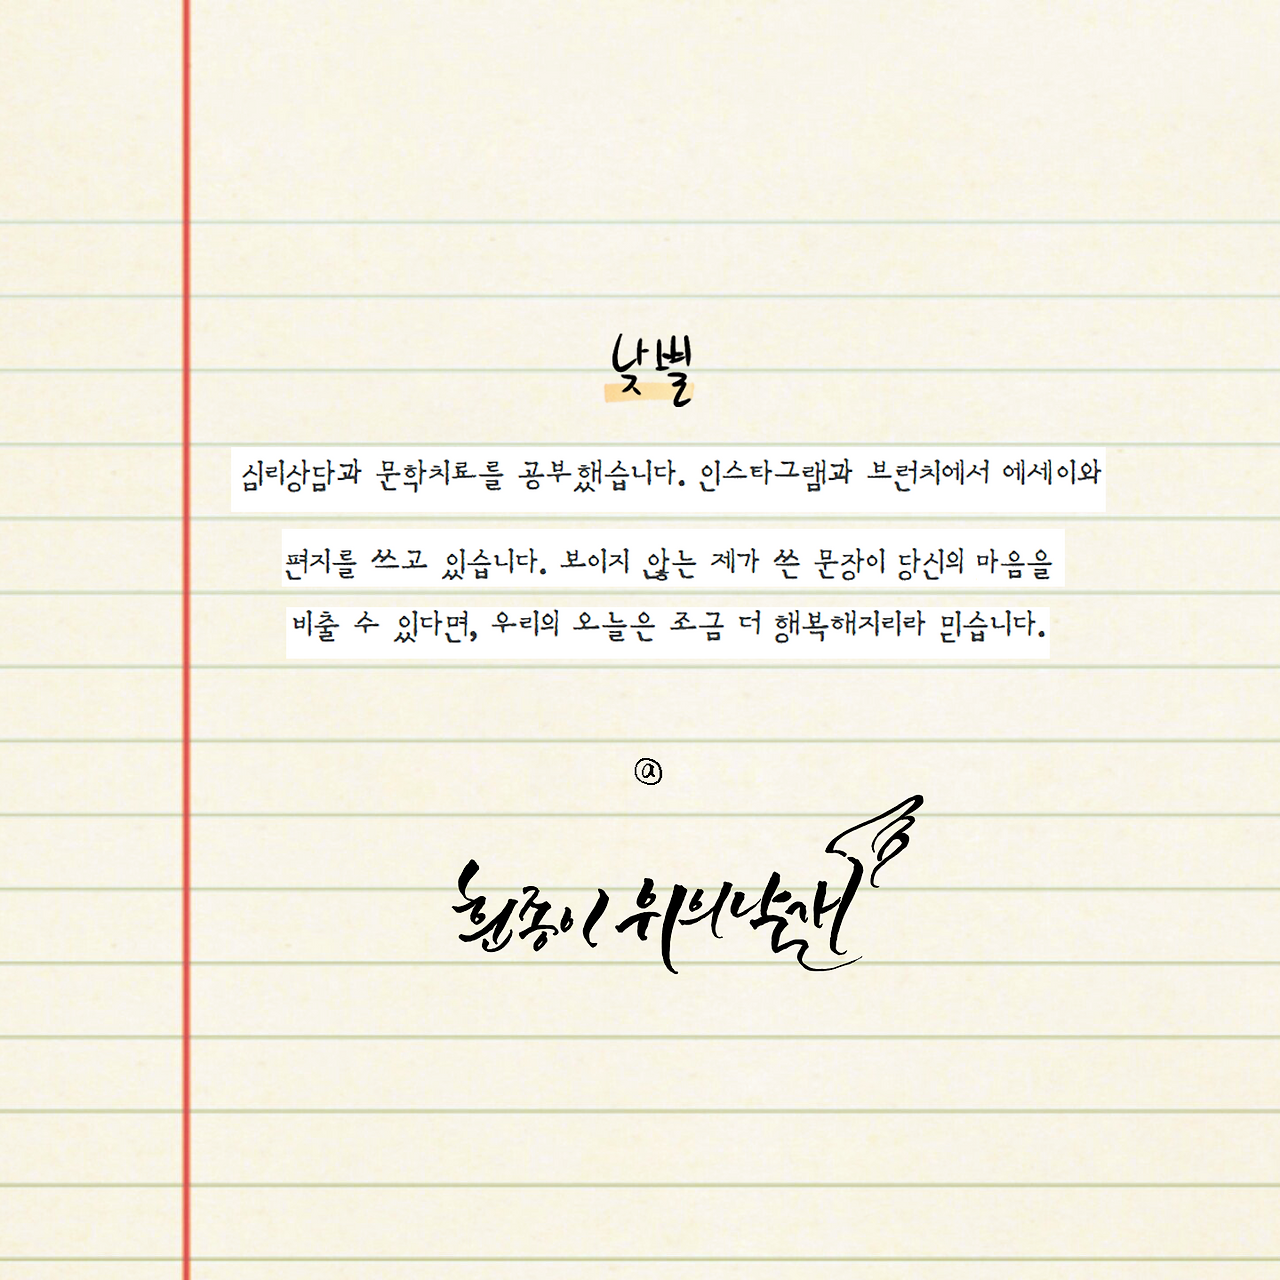 낮별
심리상담과 문학치료를 공부했습니다. 인스타그램과 브런치에서 에세이와
편지를 쓰고 있습니다. 보이지 않는 제가 쓴 문장이 당신의 마음을
비출 수 있다면, 우리의 오늘은 조금 더 행복해지리라 믿습니다.
@
흰종이 위의날개